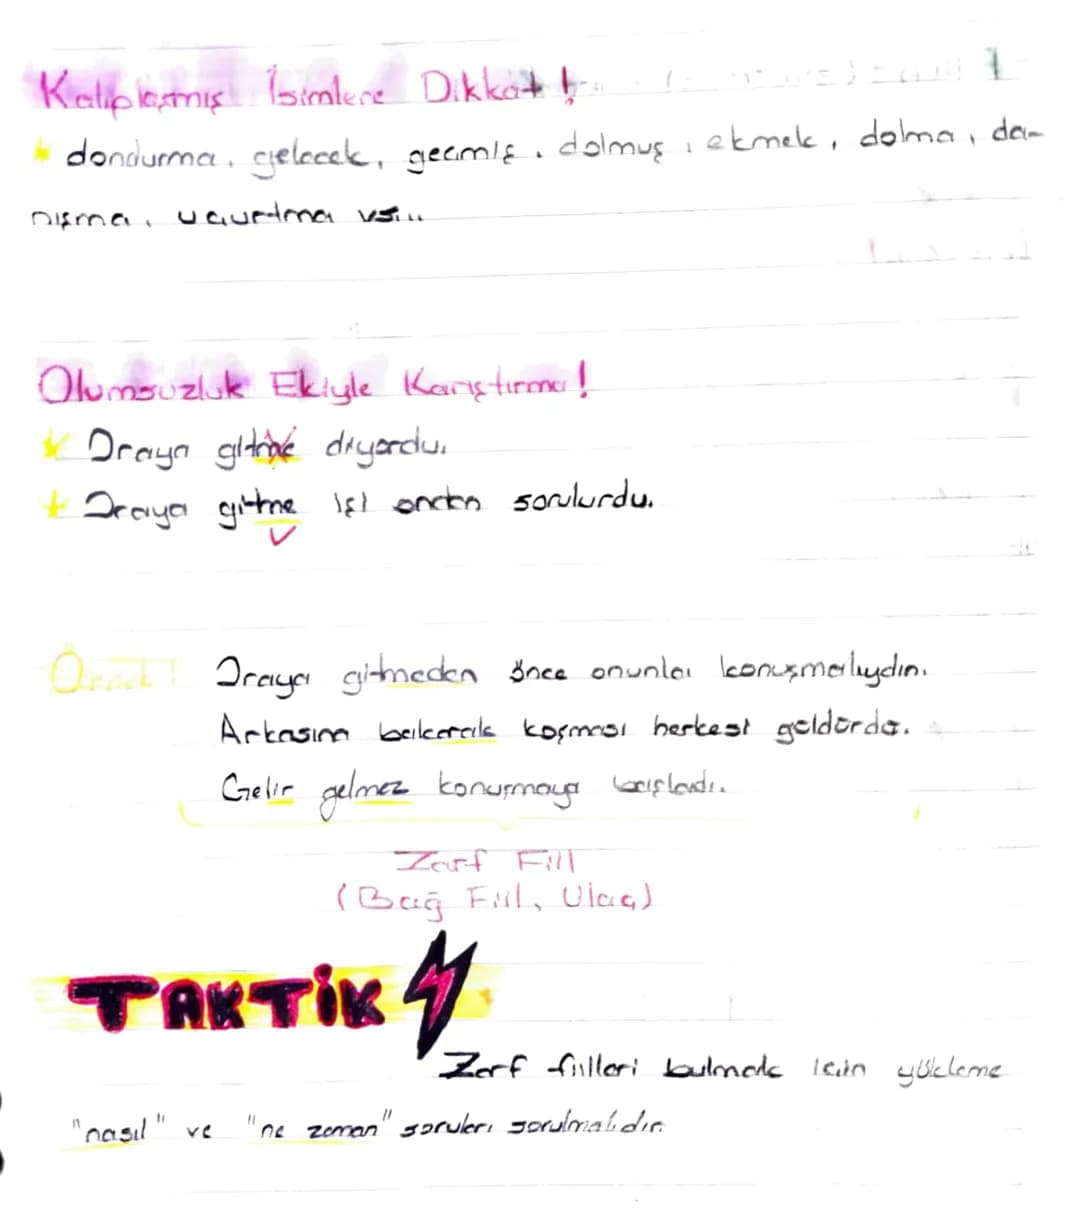 Kalıplaşmış İsimlere Dikkat!
dondurma, gelecek, geçmiş, dolmuş, ekmek, dolma, da-
nışma, uçurtma vs...
Olumsuzluk Ekiyle Karıştırma!
Oraya gitme diyordu.
Oraya gitme işi ondan sorulurdu.
Örnek Oraya gitmeden önce onunla konuşmalıydın.
Arkasına bakarak koşması herkesi güldürdü.
Gelir gelmez konuşmaya başladı.
Zarf Fiil
(Bağ Fiil, Ulaç)
TAKTİK
Zarf fiilleri bulmak için yükleme
"nasıl" ve "ne zaman" soruları sorulmalıdır.